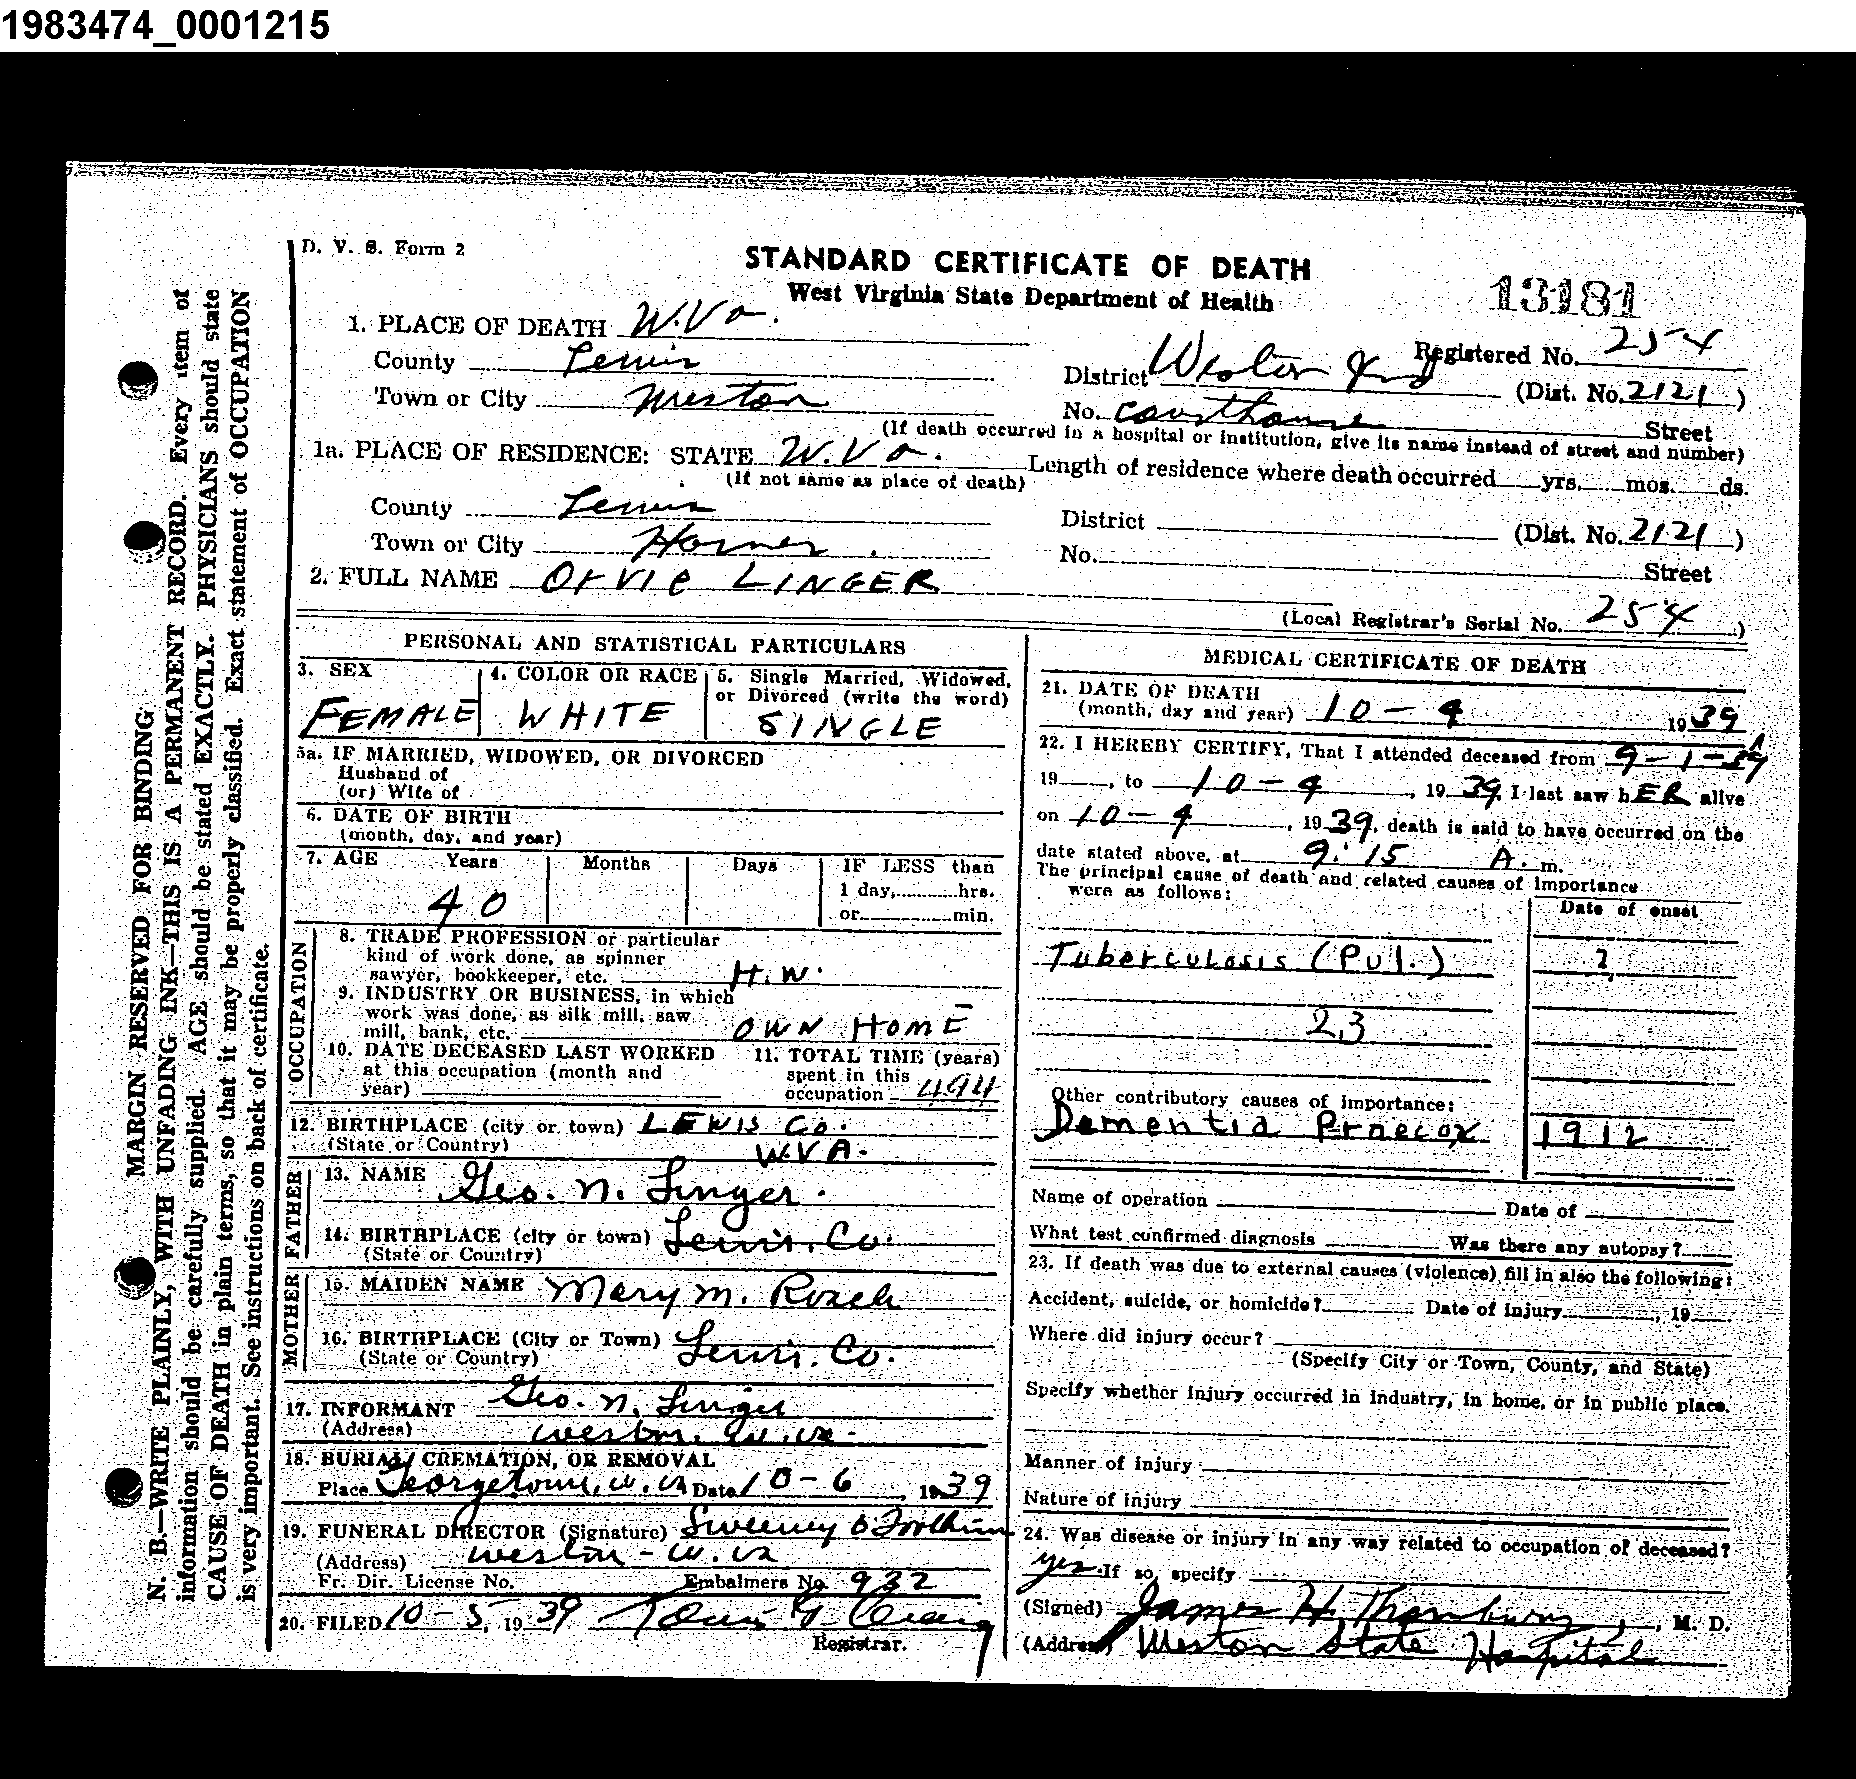 1983474_0001215
D. V. S. Form 2
STANDARD CERTIFICATE OF DEATH
West Virginia State Department of Health
13181
1. PLACE OF DEATH W.Va.
Registered No. 254
County Lewis
District Weston (Dist. No. 2121)
Town or City Weston
No. Courthouse Street
(If death occurred in a hospital or institution, give its name instead of street and number)
1a. PLACE OF RESIDENCE: STATE W.Va.
(If not same as place of death)
Length of residence where death occurred yrs. mos. ds.
County Lewis
District (Dist. No. 2121)
Town or City Horner.
No. Street
2. FULL NAME Orvie LINGER
(Local Registrar's Serial No. 254)
PERSONAL AND STATISTICAL PARTICULARS
3. SEX
FEMALE
4. COLOR OR RACE
WHITE
5. Single Married, Widowed,
or Divorced (write the word)
SINGLE
5a. IF MARRIED, WIDOWED, OR DIVORCED
Husband of
(or) Wife of
6. DATE OF BIRTH
(month, day, and year)
7. AGE Years Months Days IF LESS than
1 day, hrs.
or min.
40
OCCUPATION
8. TRADE PROFESSION or particular
kind of work done, as spinner
sawyer, bookkeeper, etc. H.W.
9. INDUSTRY OR BUSINESS, in which
work was done, as silk mill, saw
mill, bank, etc. OWN HOME
10. DATE DECEASED LAST WORKED
at this occupation (month and
year)
11. TOTAL TIME (years)
spent in this
occupation 494
12. BIRTHPLACE (city or town) LEWIS Co.
(State or Country) W.VA.
FATHER
13. NAME Geo. N. Linger.
14. BIRTHPLACE (city or town) Lewis. Co.
(State or Country)
MOTHER
15. MAIDEN NAME Mary M. Roach
16. BIRTHPLACE (City or Town) Lewis. Co.
(State or Country)
17. INFORMANT Geo. N. Linger
(Address) Weston. W.Va.
18. BURIAL, CREMATION, OR REMOVAL
Place Georgetown, W. Va Date 10-6 1939
19. FUNERAL DIRECTOR (Signature) Sweeney
(Address) Weston - W. Va
Fr. Dir. License No. Embalmers No. 932
20. FILED 10-5, 1939
Registrar.
MEDICAL CERTIFICATE OF DEATH
21. DATE OF DEATH
(month, day and year) 10-4 1939
22. I HEREBY CERTIFY, That I attended deceased from 9-1-39
19 , to 10-4, 1939, I last saw hER alive
on 10-4, 1939, death is said to have occurred on the
date stated above, at 9:15 A. m.
The principal cause of death and related causes of importance
were as follows:
Date of onset
Tuberculosis (Pul.) ?
23
Other contributory causes of importance:
Dementia Praecox 1912
Name of operation Date of
What test confirmed diagnosis Was there any autopsy?
23. If death was due to external causes (violence) fill in also the following:
Accident, suicide, or homicide? Date of injury , 19
Where did injury occur?
(Specify City or Town, County, and State)
Specify whether injury occurred in industry, in home, or in public place.
Manner of injury
Nature of injury
24. Was disease or injury in any way related to occupation of deceased?
yes. If so, specify
(Signed) James H. Thornbury, M. D.
(Address) Weston State Hospital
MARGIN RESERVED FOR BINDING
N. B.—WRITE PLAINLY, WITH UNFADING INK—THIS IS A PERMANENT RECORD. Every item of
information should be carefully supplied. AGE should be stated EXACTLY. PHYSICIANS should state
CAUSE OF DEATH in plain terms, so that it may be properly classified. Exact statement of OCCUPATION
is very important. See instructions on back of certificate.